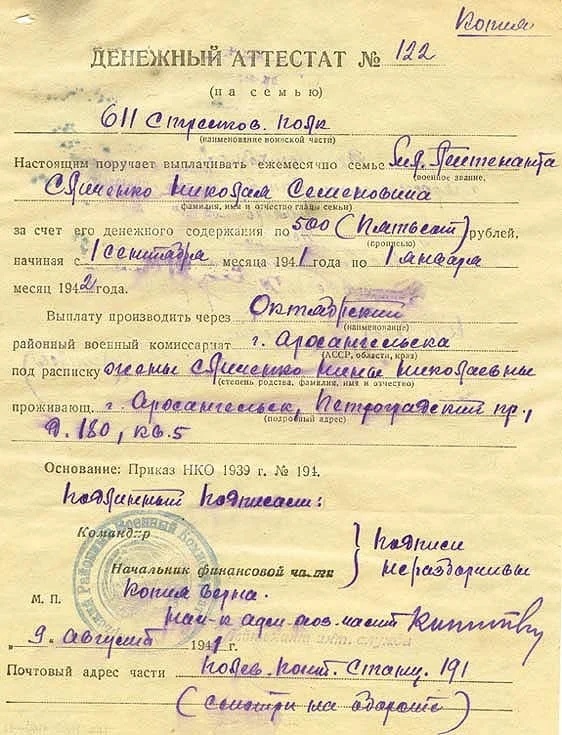 Копия
ДЕНЕЖНЫЙ АТТЕСТАТ № 122
(на семью)
611 стрелков. полк
(наименование воинской части)
Настоящим поручает выплачивать ежемесячно семье мл. лейтенанта
(военное звание,
Николая Семеновича
фамилия, имя и отчество главы семьи)
за счет его денежного содержания по 500 (Пятьсот) рублей,
(прописью)
начиная с 1 сентября месяца 1941 года по 1 января
месяц 1942 года.
Выплату производить через Октябрский
(наименование)
районный военный комиссариат г. Архангельска
(АССР, области, края)
под расписку жены Нины Николаевны
(степень родства, фамилия, имя и отчество)
проживающ. г. Архангельск, Петроградский пр.,
(подробный адрес)
д. 180, кв. 5
Основание: Приказ НКО 1939 г. № 194.
Подлинный подписали:
Командир
Начальник финансовой части
} подписи неразборчивы
Копия верна.
М. П.
Нач-к адм-хоз. части
„9“ август 1941 г.
Почтовый адрес части полев. почт. станц. 191
(смотри на обороте)